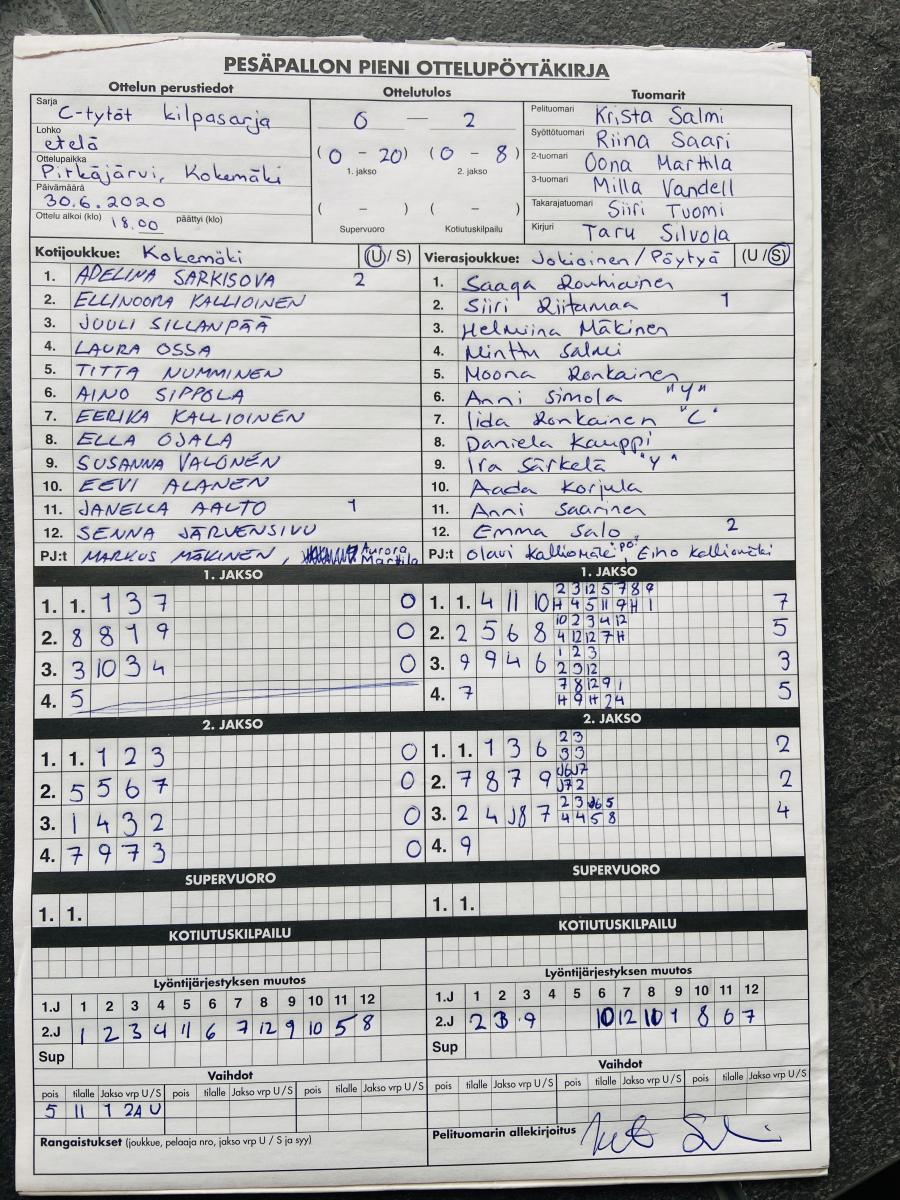 PESÄPALLON PIENI OTTELUPÖYTÄKIRJA
Ottelun perustiedot
Ottelutulos
Tuomarit
Sarja C-tytöt kilpasarja
Lohko etelä
Ottelupaikka Pitkäjärvi, Kokemäki
Päivämäärä 30.6.2020
Ottelu alkoi (klo) 18.00 päättyi (klo)
0 — 2
(0 - 20) (0 - 8)
1. jakso 2. jakso
( - ) ( - )
Supervuoro Kotiutuskilpailu
Pelituomari Krista Salmi
Syöttötuomari Riina Saari
2-tuomari Oona Marttila
3-tuomari Milla Vandell
Takarajatuomari Siiri Tuomi
Kirjuri Taru Silvola
Kotijoukkue: Kokemäki (U/ S)
1. ADELINA SARKISOVA 2
2. ELLINOORA KALLIOINEN
3. JUULI SILLANPÄÄ
4. LAURA OSSA
5. TITTA NUMMINEN
6. AINO SIPPOLA
7. EERIKA KALLIOINEN
8. ELLA OJALA
9. SUSANNA VALONEN
10. EEVI ALANEN
11. JANELLA AALTO 1
12. SENNA JÄRVENSIVU
PJ:t MARKUS MÄKINEN, Aurora Marttila
Vierasjoukkue: Jokioinen / Pöytyä (U / S)
1. Saaga Rouhiainen
2. Siiri Riitamaa 1
3. Helmiina Mäkinen
4. Minttu Salmi
5. Moona Ronkainen
6. Anni Simola "Y"
7. Iida Ronkainen "C"
8. Daniela Kauppi
9. Ira Särkelä "Y"
10. Aada Korjula
11. Anni Saarinen
12. Emma Salo 2
PJ:t Olavi Kalliomäki "PO" Eino Kalliomäki
1. JAKSO
1. 1. 1 3 7 0
2. 8 8 1 9 0
3. 3 10 3 4 0
4. 5
2. JAKSO
1. 1. 1 2 3 0
2. 5 5 6 7 0
3. 1 4 3 2 0
4. 7 9 7 3 0
SUPERVUORO
1. 1.
KOTIUTUSKILPAILU
Lyöntijärjestyksen muutos
1.J 1 2 3 4 5 6 7 8 9 10 11 12
2.J 1 2 3 4 11 6 7 12 9 10 5 8
Sup
Vaihdot
pois tilalle Jakso vrp U / S pois tilalle Jakso vrp U / S pois tilalle Jakso vrp U / S
5 11 1 2A U
Rangaistukset (joukkue, pelaaja nro, jakso vrp U / S ja syy)
1. JAKSO
2 3 12 5 7 8 9
1. 1. 4 11 10 H 4 5 11 9 H 1 7
10 2 3 4 12
2. 2 5 6 8 4 12 12 7 H 5
1 2 3
3. 9 9 4 6 2 3 12 3
7 8 12 9 1
4. 7 H 9 H 2 4 5
2. JAKSO
2 3
1. 1. 1 3 6 3 3 2
J6 J7
2. 7 8 7 9 J7 2 2
2 3 J6 5
3. 2 4 J8 7 4 4 5 8 4
4. 9
SUPERVUORO
1. 1.
KOTIUTUSKILPAILU
Lyöntijärjestyksen muutos
1.J 1 2 3 4 5 6 7 8 9 10 11 12
2.J 2 3 9 10 12 1 8 6 7
Sup
Vaihdot
pois tilalle Jakso vrp U / S pois tilalle Jakso vrp U / S pois tilalle Jakso vrp U / S
Pelituomarin allekirjoitus